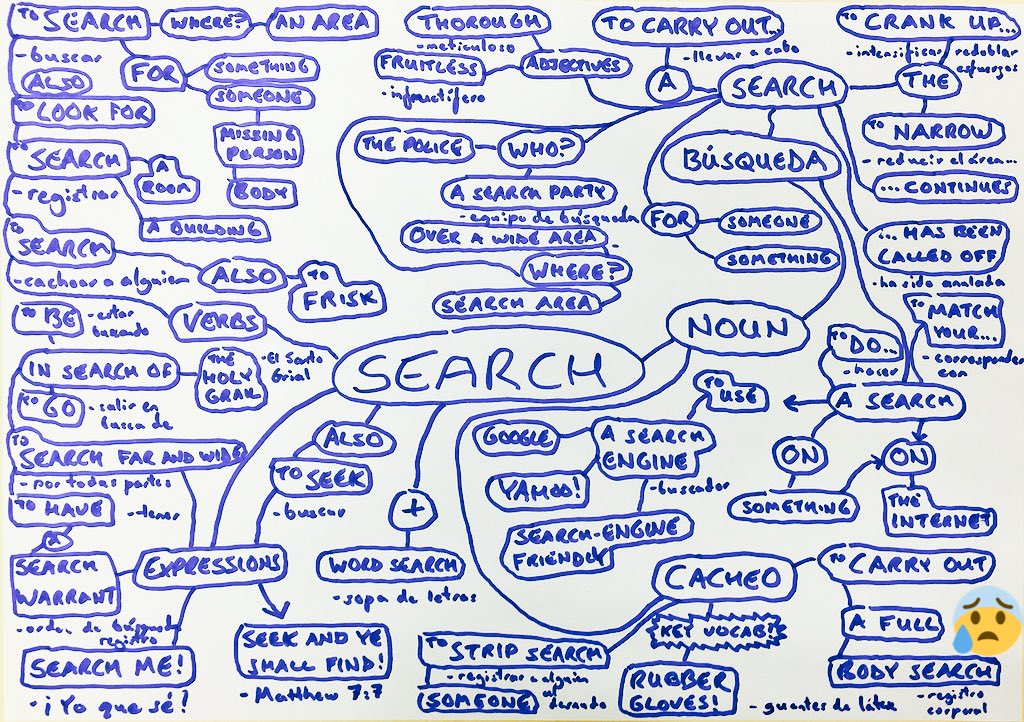 TO SEARCH
WHERE?
AN AREA
- buscar
FOR
SOMETHING
SOMEONE
MISSING
PERSON
BODY
ALSO
TO LOOK FOR
TO SEARCH
- registrar
A
ROOM
A BUILDING
TO
SEARCH
- cachear a alguien
ALSO
TO
FRISK
VERBS
TO BE
- estar
buscando
IN SEARCH OF
THE
HOLY
GRAIL
- El Santo
Grial
TO GO
- salir en
busca de
TO
SEARCH FAR AND WIDE
- por todas partes
TO HAVE
- tener
A
SEARCH
WARRANT
- orden de búsqueda
registro
EXPRESSIONS
SEARCH ME!
- ¡Yo que sé!
SEEK AND YE
SHALL FIND!
- Matthew 7:7
ALSO
TO SEEK
- buscar
SEARCH
+
WORD SEARCH
- sopa de letras
THOROUGH
- meticuloso
FRUITLESS
- infructífero
ADJECTIVES
TO CARRY OUT...
- llevar a cabo
A
SEARCH
TO CRANK UP...
- intensificar, redoblar
esfuerzos
THE
TO NARROW
- reducir el área...
... CONTINUES
... HAS BEEN
CALLED OFF
- ha sido anulada
BÚSQUEDA
THE POLICE
WHO?
A SEARCH PARTY
- equipo de búsqueda
OVER A WIDE AREA
WHERE?
SEARCH AREA
FOR
SOMEONE
SOMETHING
NOUN
TO
MATCH
YOUR...
- corresponder
con
TO
DO...
- hacer
A SEARCH
ON
SOMETHING
ON
THE
INTERNET
TO
USE
A SEARCH
ENGINE
- buscador
GOOGLE
YAHOO!
SEARCH-ENGINE
FRIENDLY
CACHEO
TO CARRY OUT
A FULL
BODY SEARCH
- registro
corporal
KEY VOCAB!
RUBBER
GLOVES!
- guantes de látex
TO
STRIP SEARCH
- registrar a alguien
SOMEONE